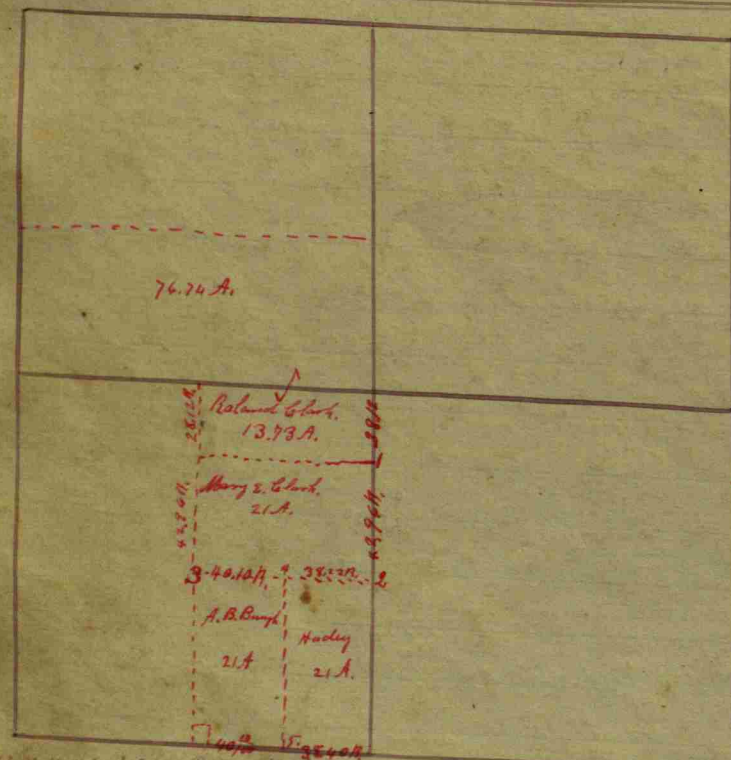 76.74 A.
Roland Clark.
13.73 A.
28.12 R.
28 R
1
Mary E. Clark.
21 A.
42.96 R.
3 40.10 R. 4 38.22 R. 2
A. B.
21 A
Hadley
21 A.
5.
38.40 R.